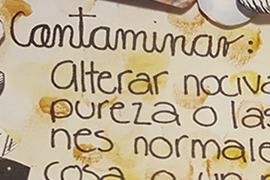 Contaminar:
Alterar nociva
pureza o las
nes normale
cosa o un